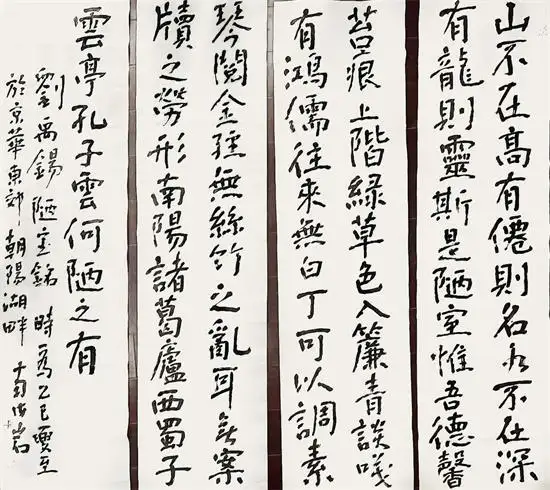 山不在高有僊則名水不在深
有龍則靈斯是陋室惟吾德馨
苔痕上階緑草色入簾青談咲
有鴻儒往来無白丁可以調素
琴閲金經無絲竹之亂耳无案
牘之勞形南陽諸葛廬西蜀子
雲亭孔子雲何陋之有
劉禹錫陋室銘 時爲乙巳夏至
於京華東郊朝陽湖畔 南海岩